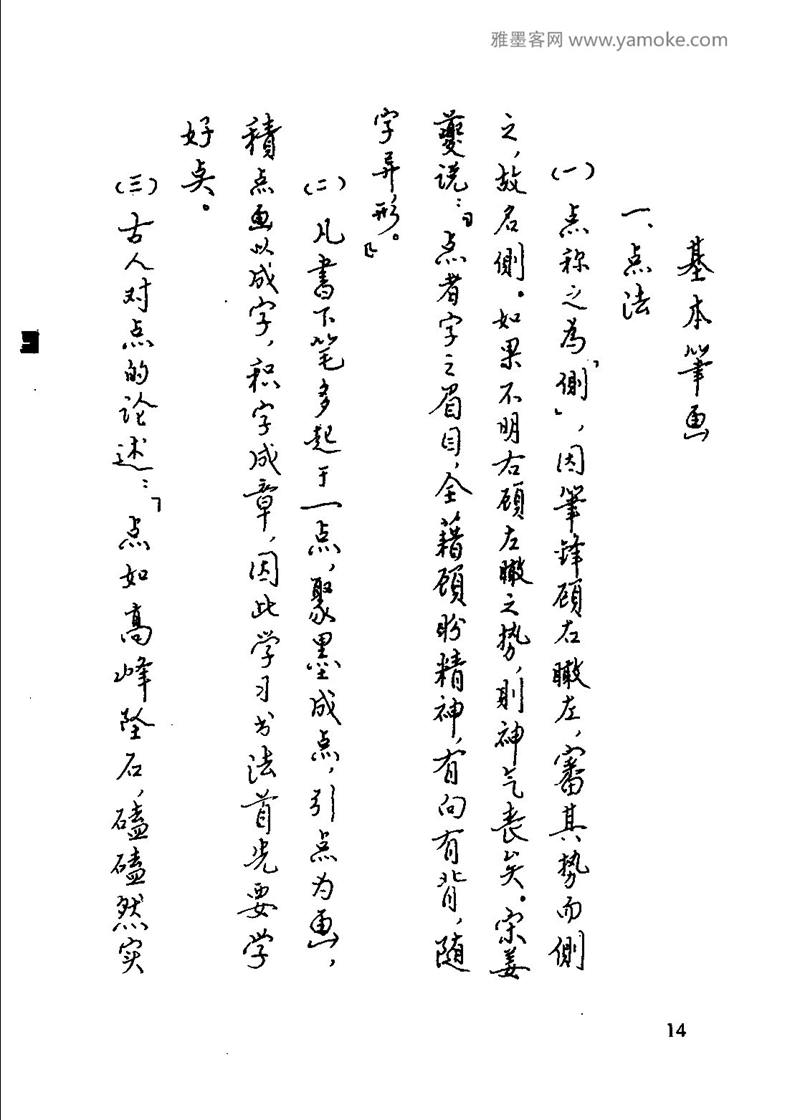 雅墨客网 www.yamoke.com
基本筆画
一、点法
(一)点称之为「側」，因筆鋒顾右瞰左，審其势而側
之，故名側。如果不明右顾左瞰之势，则神气丧矣。宋姜
夔说：「点者字之眉目，全藉顾盼精神，有向有背，随
字异形。」
(二)凡書下笔多起于一点，聚墨成点，引点为画，
積点画以成字，积字成章，因此学习书法首先要学
好点。
(三)古人对点的论述：「点如高峰坠石，磕磕然实
14